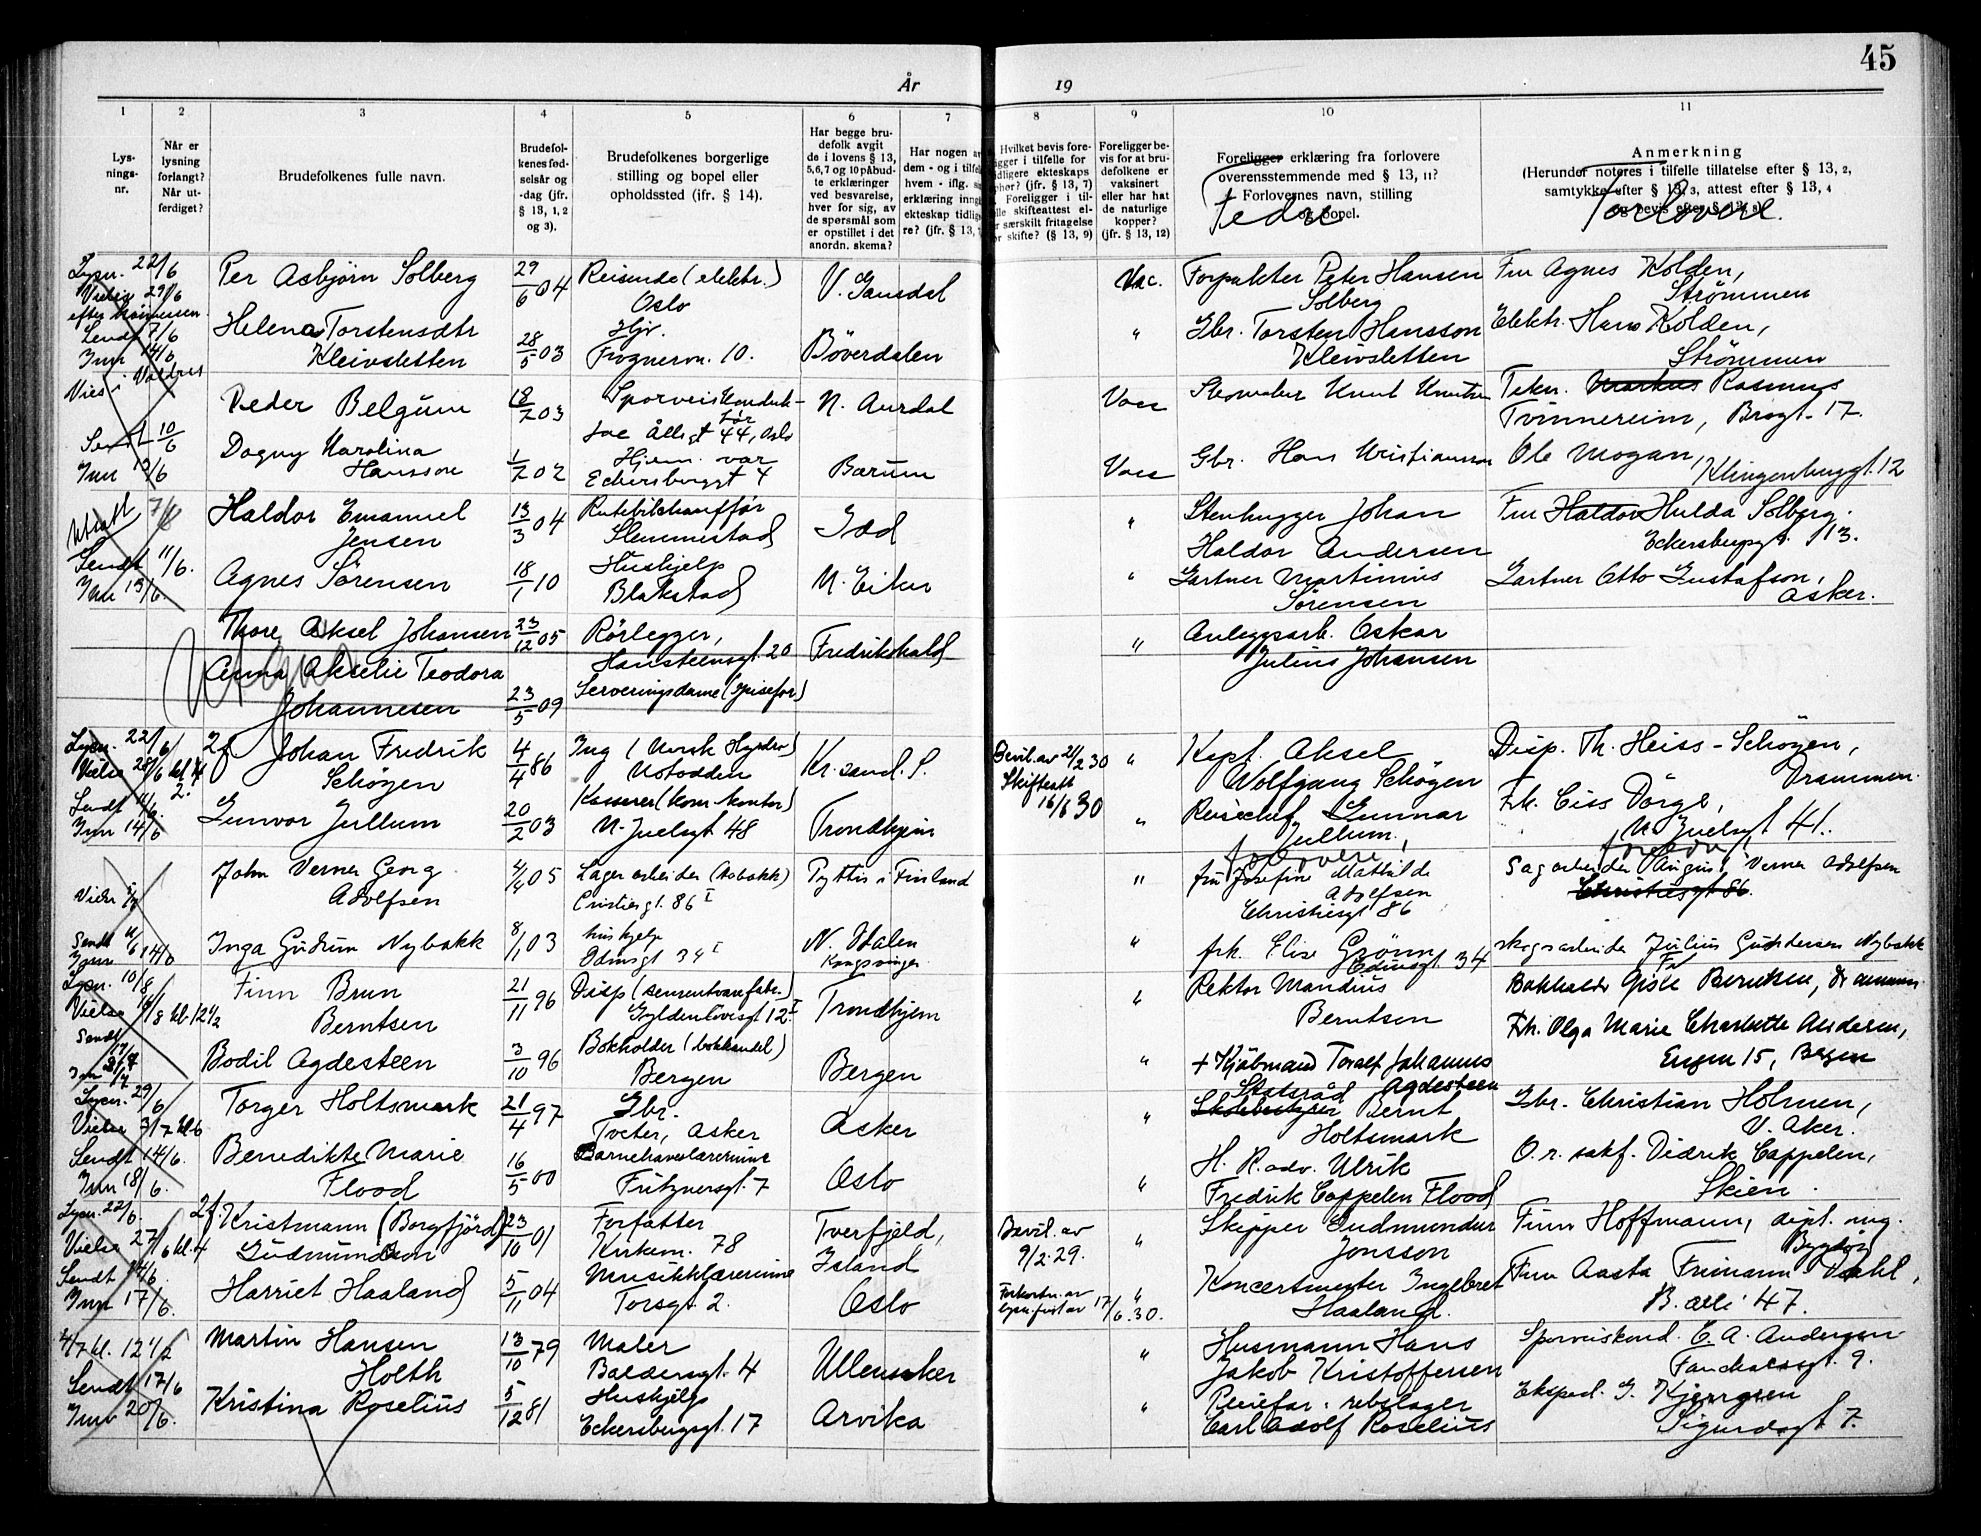 45
År
19
1
2
3
4
5
6
7
8
9
10
11
Lys-
nings-
nr.
Når er
lysning
forlangt?
Når ut-
ferdiget?
Brudefolkenes fulle navn.
Brudefol-
kenes fød-
selsår og
-dag (jfr.
§ 13, 1, 2
og 3).
Brudefolkenes borgerlige
stilling og bopel eller
opholdssted (jfr. § 14).
Har begge bru-
defolk avgit
de i lovens § 13,
5,6,7 og 10 påbud-
te erklæringer
ved besvarelse,
hver for sig, av
de spørsmål som
er opstillet i det
anordn. skema?
Har nogen a
dem - og i tilfel
hvem - iflg. s
erklæring inng
ekteskap tidlig
re? (jfr. § 13,
Hvilket bevis fore-
ligger i tilfelle for
idligere ekteskaps
phør? (jfr. § 13, 7)
Foreligger i til-
lle skifteattest el-
r særskilt fritagelse
r skifte? (§ 13, 9)
Foreligger be-
vis for at bru-
defolkene er
vaksinert
eller har hat
de naturlige
kopper?
(jfr. § 13, 12)
Foreligger erklæring fra forlovere
overensstemmende med § 13, 11?
Forlovernes navn, stilling
og bopel.
Fedre
Anmerkning
(Herunder noteres i tilfelle tillatelse efter § 13, 2,
samtykke efter § 13, 3, attest efter § 13, 4
og bevis efter § 13, 8)
Forlovere.
Lysn. 22/6
Vielse 29/6
Sendt 7/6
Inn 14/6
Per Asbjörn Solberg
29/6 04
Reisende (elektr.)
Oslo
V. Gausdal
Vac.
Forpakter Peter Hansen
Solberg
Fru Agnes Kolden,
Strömmen
Helena Torstensdtr
Kleivsletten
28/5 03
Hjv.
Frognervn. 10.
Böverdalen
"
Gbr. Torsten Hansson
Kleivsletten
Elektr. Hans Kolden,
Strömmen
Vies i Valdres
Sendt 10/6
Inn 13/6
Peder Belgum
18/2 03
Sporveiskonduk-
tör
44, Oslo
N. Aurdal
Vacc
Knut Knutsen
Tekn. Markus Rasmus
Tvinnereim, Brogt. 17.
Dagny Karolina
Hansson
1/7 02
Hjem. var
Eckersbergsgt 4
Bærum
Vacc
Gbr. Hans Kristiansen
Ole Mogan,
Klingenberggt. 12
Utsatt 7/6
Sendt 11/6.
Inn 13/6
Haldor Emanuel
Jensen
13/3 04
Rutebilchauffør
Slemmestad
Idd
"
Stenhugger Johan
Haldor Andersen
Fru Haldor Hulda Solberg.
Eckersbergsgt. 13.
Agnes Sörensen
18/1 10
Hushjelp
Blakstad
N. Eiker
"
Gartner Martinius
Sörensen
Gartner Otto Gustafson,
Asker.
Thore Aksel Johansen
23/12 05
Rörlegger,
Hansteensgt. 20
Fredrikshald
"
Anleggsarb. Oskar
Julius Johansen
Anna Akselie Teodora
Johannesen
23/5 09
Serveringsdame (spisefor.)
Lysn. 22/6
Vielse 28/6 kl. 4
2.
Sendt 11/6.
Inn 14/6
2f Johan Fredrik
Schögen
4/4 86
Ing (Norsk Hydro)
Notodden
Kr. sand. S.
Bevil. av 21/2 30
Skifteatt
16/6 30
"
Kapt. Aksel
Wolfgang Schögen
Disp. Th. Heiss-Schögen,
Drammen.
Gunvor Jullum
20/2 03
Kasserer (kom. kontor)
N. Juelsgt 48
Trondhjem
"
Reisechef Gunnar
Jullum.
Frk. Ciss Dörge,
N. Juelsgt 41.
forlovere,
foreldre
John Verner Georg
Adolfsen
4/4 05
Lagerarbeider (tobakk)
Cristiesgt. 86 I
Pyttis i Finland
"
fru Josefine Mathilde
Adolfsen
Christiesgt 86
Sagarbeider August Verner Adolfsen
Christiesgt 86.
Sendt 11/6
Inn 14/6
Inga Gudrun Nybakk
8/1 03
hushjelp
Odinsgt 34 I
N. Odalen
Kongsvinger
"
frk. Elise Grönn
Odinsgt. 34
skogsarbeider Julius Gundersen Nybakk
Lysn. 10/8
Vielse 16/8 kl. 12 1/2
Sendt
Finn Brun
Berntsen
21/11 96
Disp (sementvarefabr.)
Gyldenlövesgt 12 I
Trondhjem
"
Rektor Mandius
Berntsen
Bokholder Gisle Berntsen, Drammen
Bodil Agdesteen
3/10 96
Bokholder (bokhandel)
Bergen
Bergen
"
+ Kjöbmand Toralf Johannes
Agdesteen
Frk. Olga Marie Charlotte Andersen,
Engen 15, Bergen
Lysn. 29/6
Vielse 3/7 kl. 6
Sendt 14/6.
Inn 18/6.
Torger Holtsmark
21/4 97
Gbr.
Tveter, Asker
Asker
"
Statsråd
Skolebestyrer Bernt
Holtsmark
Gbr. Christian Holmen,
V. Aker.
Benedikte Marie
Flood
16/5 00
Barnehavelærerinne
Fritznersgt. 7
Oslo
"
H. R. adv. Ulrik
Fredrik Cappelen Flood
O. r. sakf. Didrik Cappelen,
Skien.
Lysn. 22/6.
Vielse 27/6 kl. 4
Sendt 14/6.
Inn 17/6.
2f. Kristmann (Borgfjörd)
Gudmundson
23/10 01
Forfatter
Kirkevn. 78
Tverfjeld,
Island
Bevil. av
9/2.29.
"
Skipper Gudmundur
Jonsson
Finn Hoffmann, dipl. ing.
Bygdöy
Harriet Haaland
5/11 04
Musikklærerinne
Torsgt. 2.
Oslo
Forkortn. av
lysn. frist av 17/6.30.
"
Koncertmester Ingebret
Haaland.
Fru Aasta Freimann Dahl,
B. allé 47.
4/7 kl. 12 1/2
Sendt 17/6
Inn 20/6.
Martin Hansen
Holth
13/10 79
Maler
Baldersgt. 4
Ullensaker
"
Husmann Hans
Jakob Kristoffersen
Sporveiskond. E. A. Andersen
9.
Kristina Roselius
5/12 81
Hushjelp
Eckersbergsgt. 17
Arvika
"
rebslager
Carl Adolf Roselius
Eksped. G. Kjerrgren
Sigurdsgt 7.